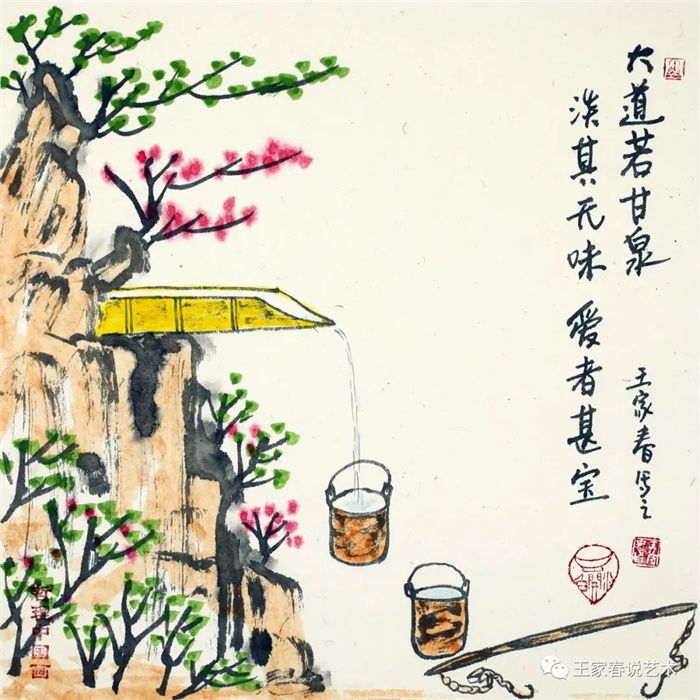 大道若甘泉
淡其无味 爱者甚宝
王家春写之
哲理中国画
王家春说艺术